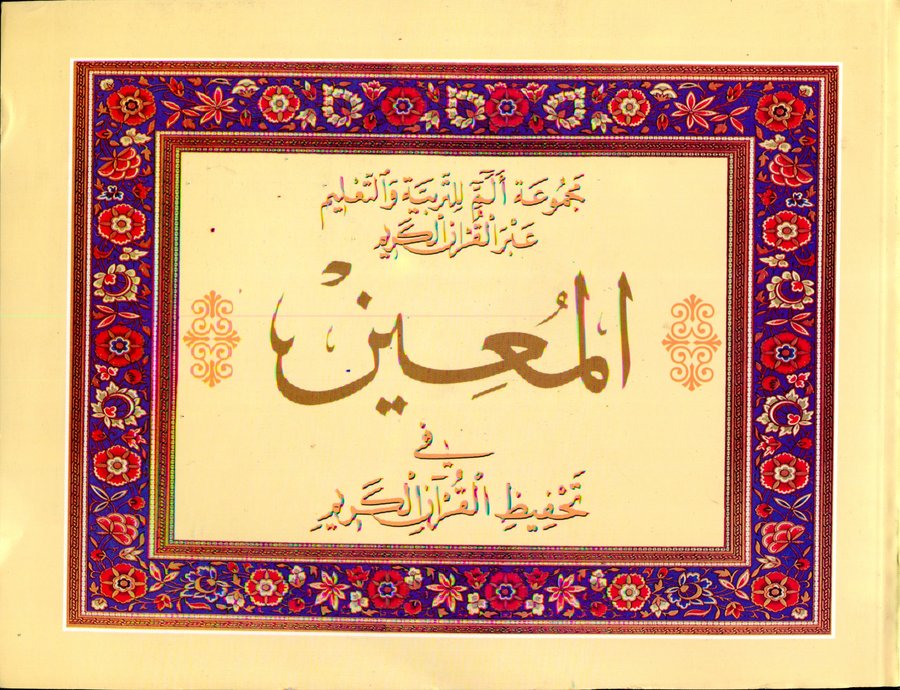 مَجْمُوعَة أَلَمّ لِلتَّربِيَةِ وَالتَّعْلِيم
عَبْرَ الْقُرْآنِ الْكَرِيم
المُعِينْ
في
تَحْفِيظِ الْقُرْآنِ الْكَرِيمِ